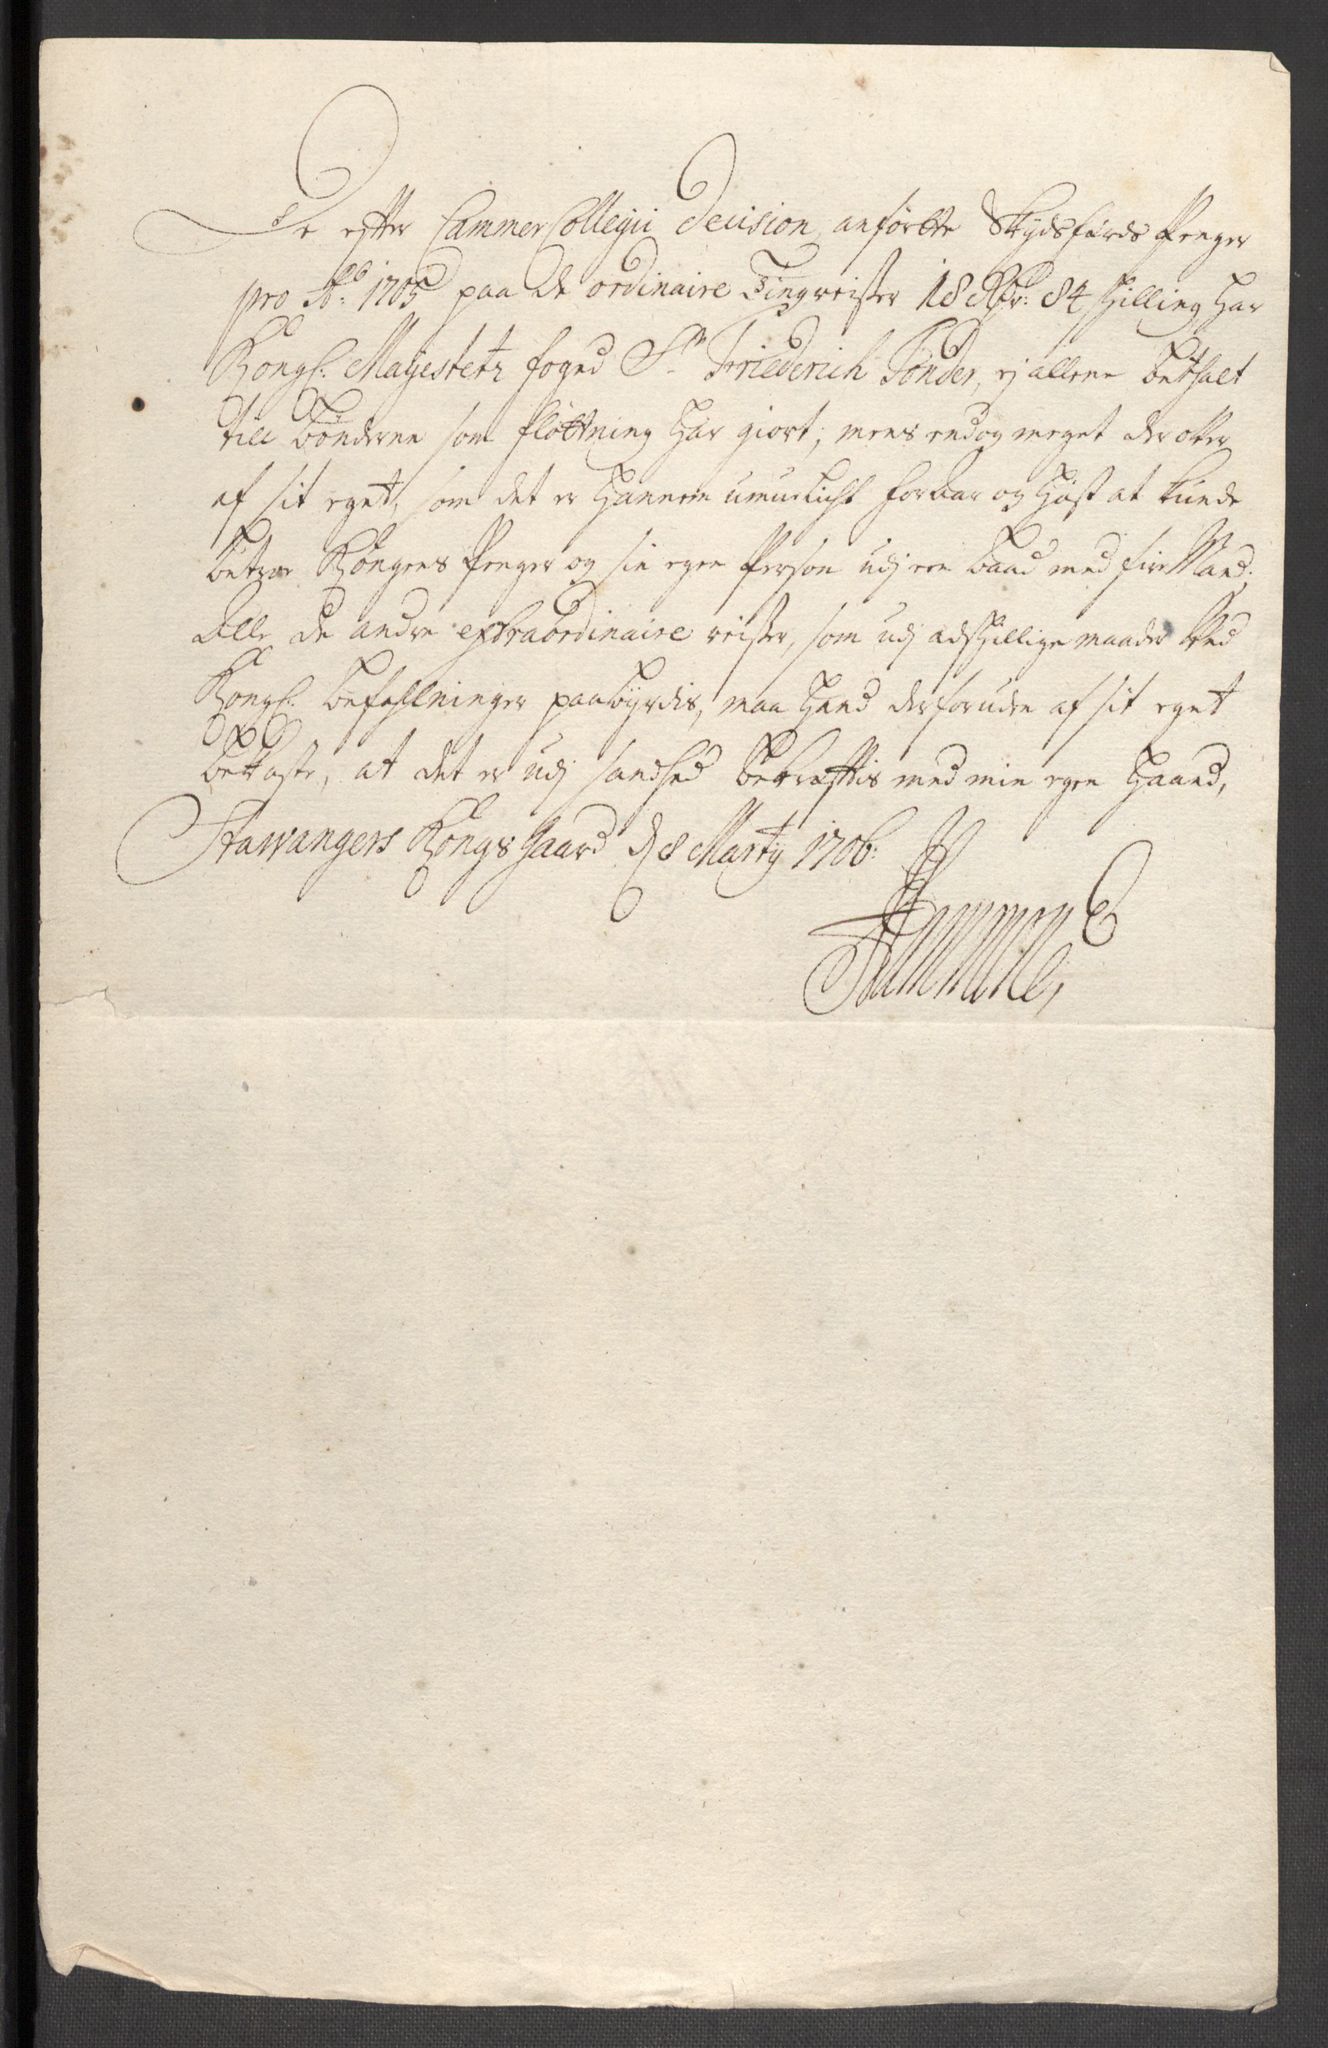 De efter Cammer Collegii Decision anførtte Skydsfærds Penger
pro Ao: 1705 paa de ordinaire Tingreiser 18 Rdr: 84 skilling, har
Kongl: Mayestetz foged Sr Friederich Tönder, ej allene betahlt
till bønderne som fløttning har giort, mens endog meget der over
af sit eget, som det er hannem umueligt for Vaar og Høst at kunde
betroe Kongens Penger og sin egen Person udj een baad med fire Mand;
Alle de andre extraordinaire reiser, som udj adskillige maader ved
Kongl: befahlninger paabyrdis, maa hand derforuden af sit eget
bekoste, at det er udj sandhed bekræfftis med min egen Haand,
Stawangers Kongsgaard d 8 Martij 1706: